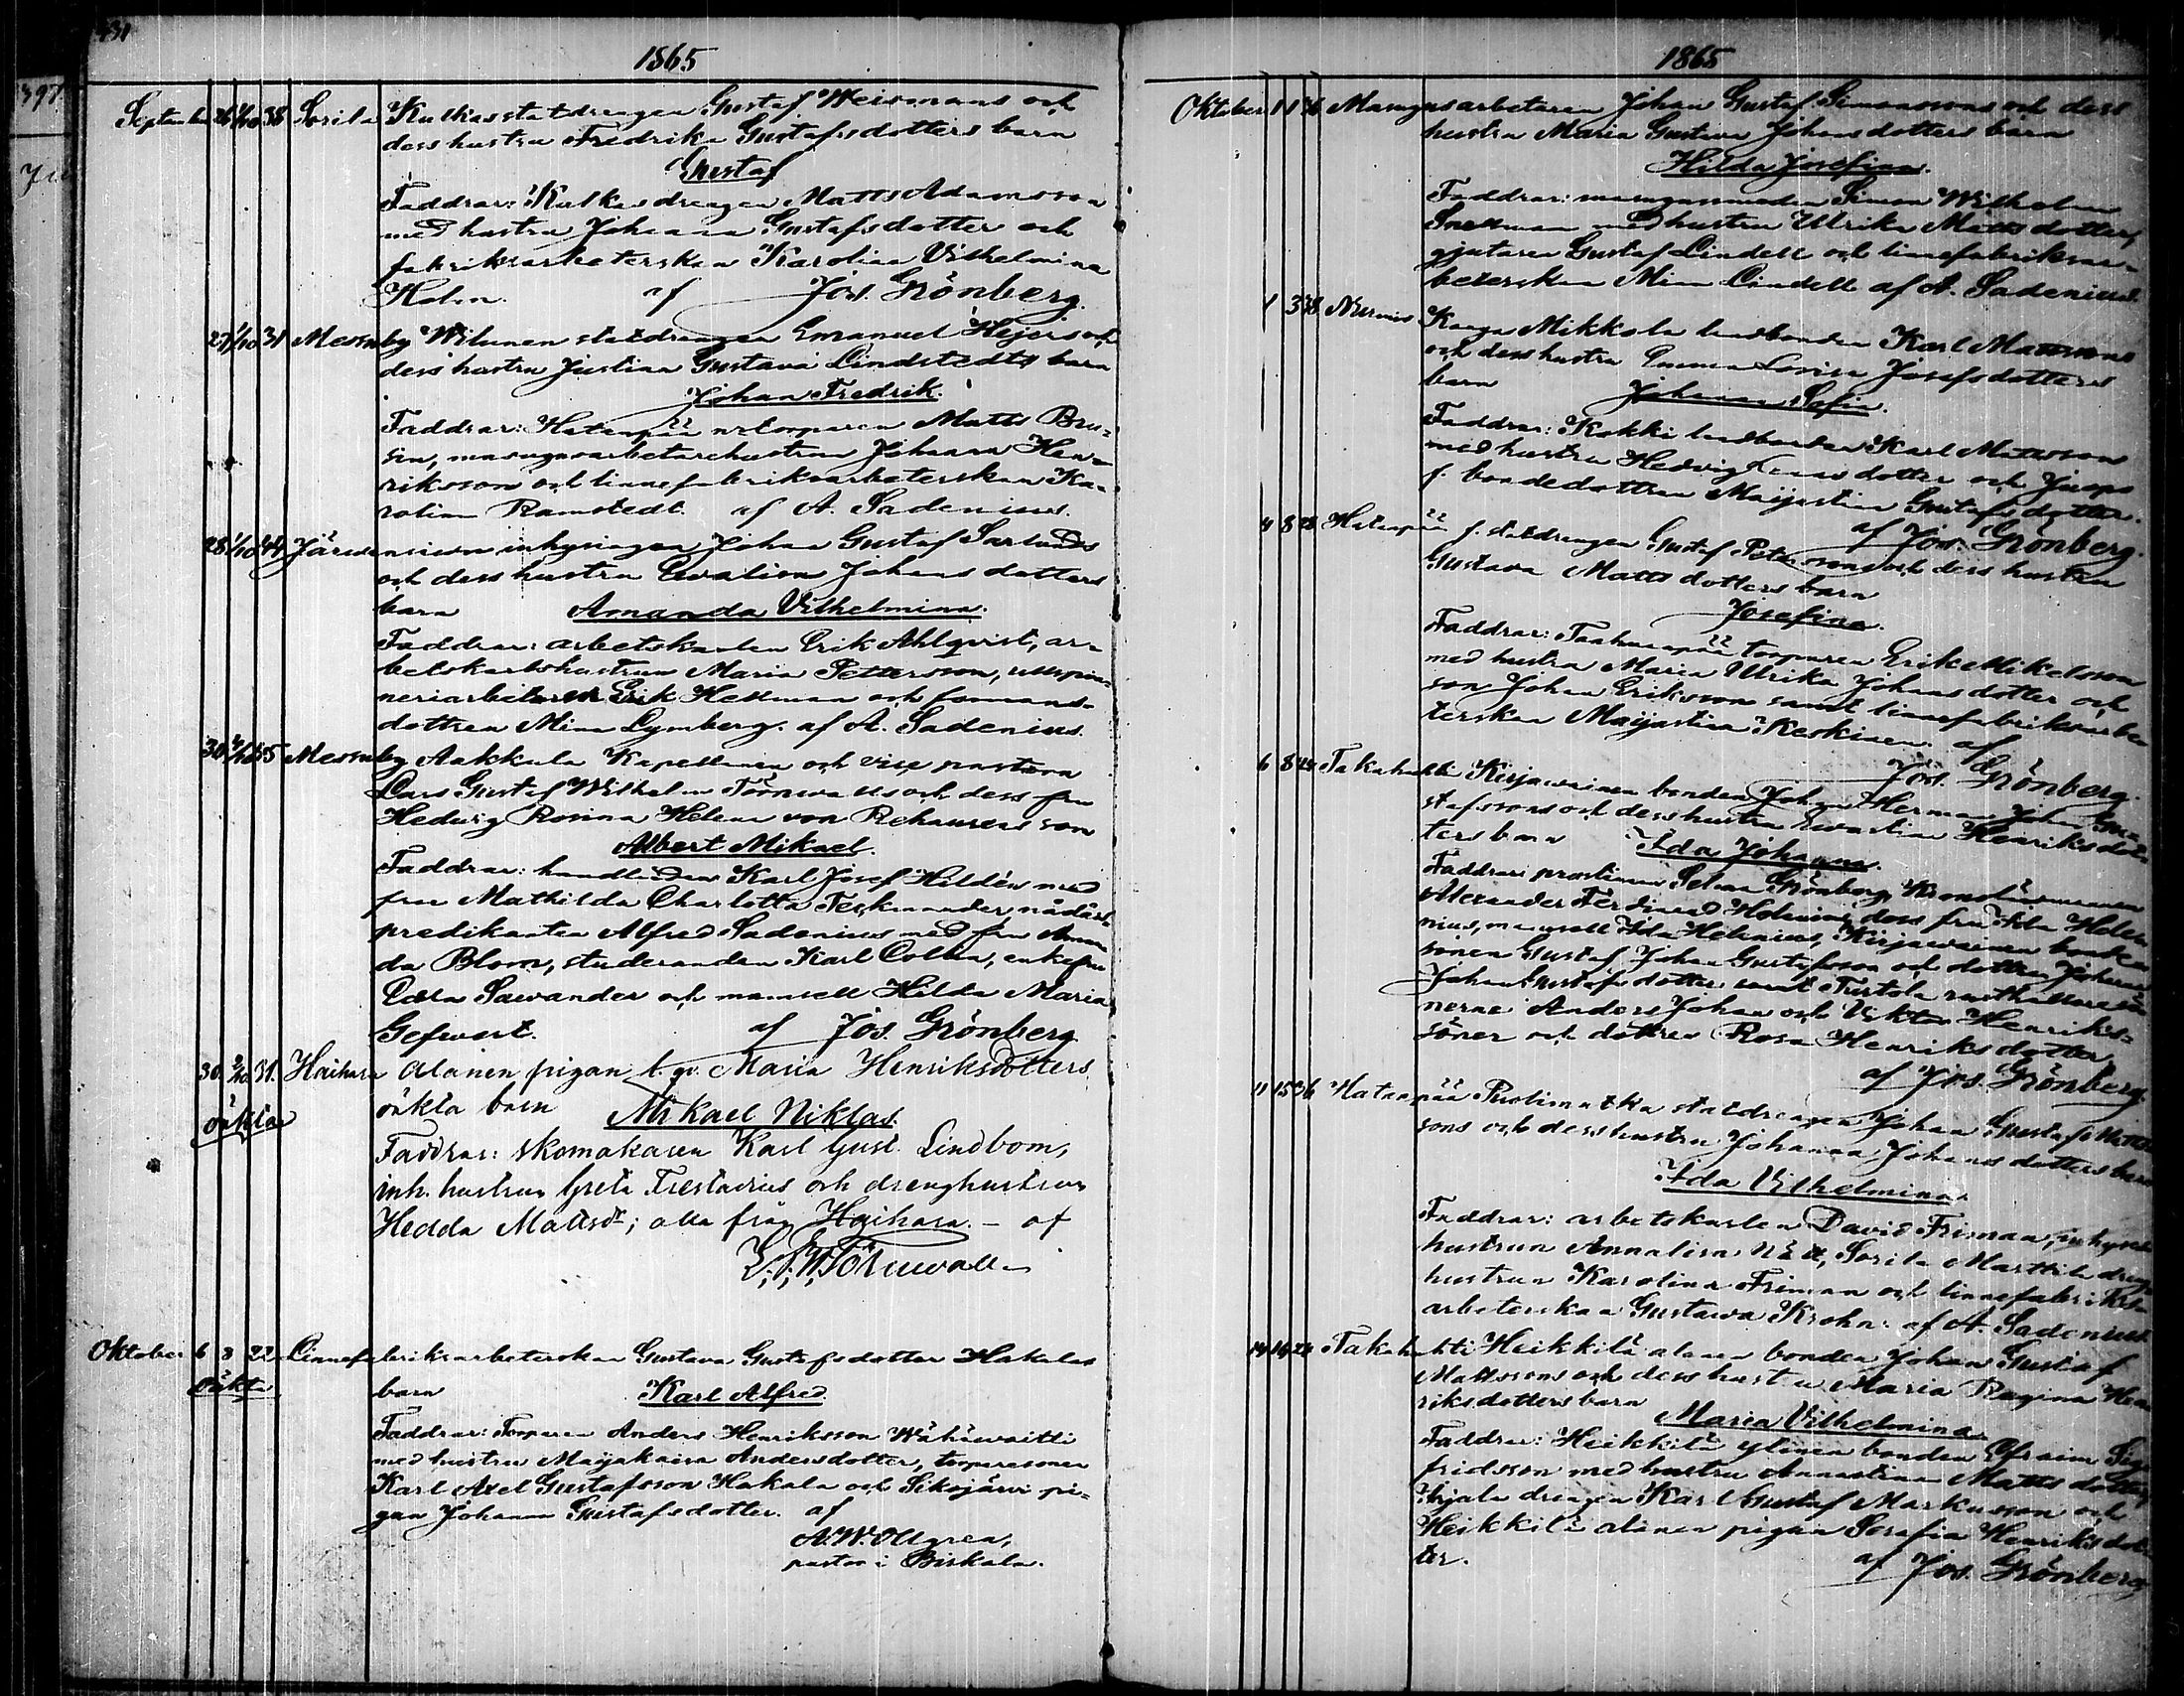 431
1865
September 26 1/10 38 Sorila Kulkas statdrengen Gustaf Weissmans och
dess hustru Fredrika Gustafsdotters barn
Gustaf
Faddrar: Kulkas drengen Matts Adamsson
med hustru Johanna Gustafsdotter och
fabriksarbeterskan Karolina Vilhelmina
Holm. af Jos. Grönberg.
27 1/10 31 Messuby Wilunen statdrengen Emanuel Hejers och
dess hustru Justina Gustava Lindstedts barn
Johan Fredrik.
Faddrar: Hatanpää torparen Matts Bru-
sin, masugnsarbetarehustrun Johanna Hen-
riksson och linnefabriksarbeterskan Ka-
rolina Ramstedt. af A. Sadenius.
28 1/10 44 Järvensivu inhysingen Johan Gustaf Sarlunds
och dess hustru Evalina Johansdotters
barn Amanda Vilhelmina.
Faddrar: arbetskarlen Erik Ahlqvist, ar-
betskarlshustrun Maria Pettersson, ullspin-
neriarbetaren Erik Hellman och
dottren Mina Lymberg. af A. Sadenius.
30 2/10 35 Messuby Aakkula Kapellanen och vice pastorn
Lars Gustaf Wilhelm Törnwalls och dess fru
Hedvig Rosina Helena von Rehausens son
Albert Mikael.
Faddrar: handlanden Karl Josef Hildén med
fru Mathilda Charlotta Teckmander, nådårs-
predikanten Alfred Sadenius med fru Aman-
da Blom, studeranden Karl Collin, enkefru
Edla Sawander och mamsell Hilda Maria
Gefwert. af Jos. Grönberg
30. 2/10. 31. Haihara Alanen pigan t.v. Maria Henriksdotters
oäkta oäkta barn Mikael Niklas.
Faddrar: skomakaren Karl Gust. Lindbom,
inh. hustrun Greta Frestadius och drenghustrun
Hedda Mattsdr; alla från Haihara. – af
L. G. W. Törnwall
Oktober 6 8 22 Linnefabriksarbeterskan Gustava Gustafsdotter Hakalas
oäkta barn Karl Alfred
Faddrar: Torparen Anders Henriksson Wähäwaitti
med hustru Maijakaisa Andersdotter, torparesonen
Karl Axel Gustafsson Hakala och Sikojärvi pi-
gan Johanna Gustafsdotter. af
A. W. Ollgren,
pastor i Birkala.
1865
Oktober 1 1 36 Masugnsarbetaren Johan Gustaf Simonssons och dess
hustru Maria Gustava Johansdotters barn
Hilda Josefina.
Faddrar: masugnsmeden Simon Wilhelm
Snellman med hustru Ulrika Mattsdotter,
gjutaren Gustaf Lindell och linnefabriksar-
beterskan Mina Lindell af A. Sadenius.
1 3 38 Nurmis Kauga Mikkola landbonden Karl Mattssons
och dess hustru Emma Lovisa Josefsdotters
barn Johanna Sofia.
Faddrar: Kokki landbonden Karl Mattsson
med hustru Hedvig dotter och
f. bondedottren Maijastina Gustafsdotter.
af Jos. Grönberg.
4 8 28 Hatanpää f. statdrengen Gustaf Peterssons och dess hustru
Gustava Mattsdotters barn
Josefina.
Faddrar: Taahenpää torparen Erik Mikelsson
med hustru Maria Ulrika Johansdotter och
son Johan Eriksson samt linnefabriksarbe-
terskan Maijastina Keskinen. af
Jos. Grönberg.
6 8 24 Takahuhti Kirjawainen bonden Johan Herman Johan Gu-
stafssons och dess hustru Evastina Henriksdot-
ters barn Ida Johanna.
Faddrar: prostinnan Selma Grönberg, Kronolänsmannen
Alexander Ferdinand Helenius, dess fru Ida Hele-
nius, mamsell Ida Helenius, Kirjawainen bonde-
sonen Gustaf Johan Gustafsson och dottren Johanna
Johan Gustafsdotter samt Turtola rusthållare sö-
nerne Anders Johan och Viktor Henriks-
söner och dottren Rosa Henriksdotter
af Jos. Grönberg.
11 15 36 Hatanpää Puolimatka statdrengen Johan Gustaf Matts-
sons och dess hustru Johanna Johansdotters barn
Ida Vilhelmina.
Faddrar: arbetskarlen David Friman, inhyses
hustrun Annalisa Nätt, Sorila Marttila dreng-
hustrun Karolina Friman och linnefabriks-
arbeterskan Gustava Krohn. af A. Sadenius
14 14 24 Takahuhti Heikkilä alanen bonden Johan Gustaf
Mattssons och dess hustru Maria Regina Hen-
riksdotters barn Maria Vilhelmina.
Faddrar: Heikkilä ylinen bonden Efraim Sig-
fridsson med hustru Annastina Mattsdotter,
drengen Karl Gustaf Markusson och
Heikkilä alanen pigan Serafia Henriksdot-
ter. af Jos. Grönberg.